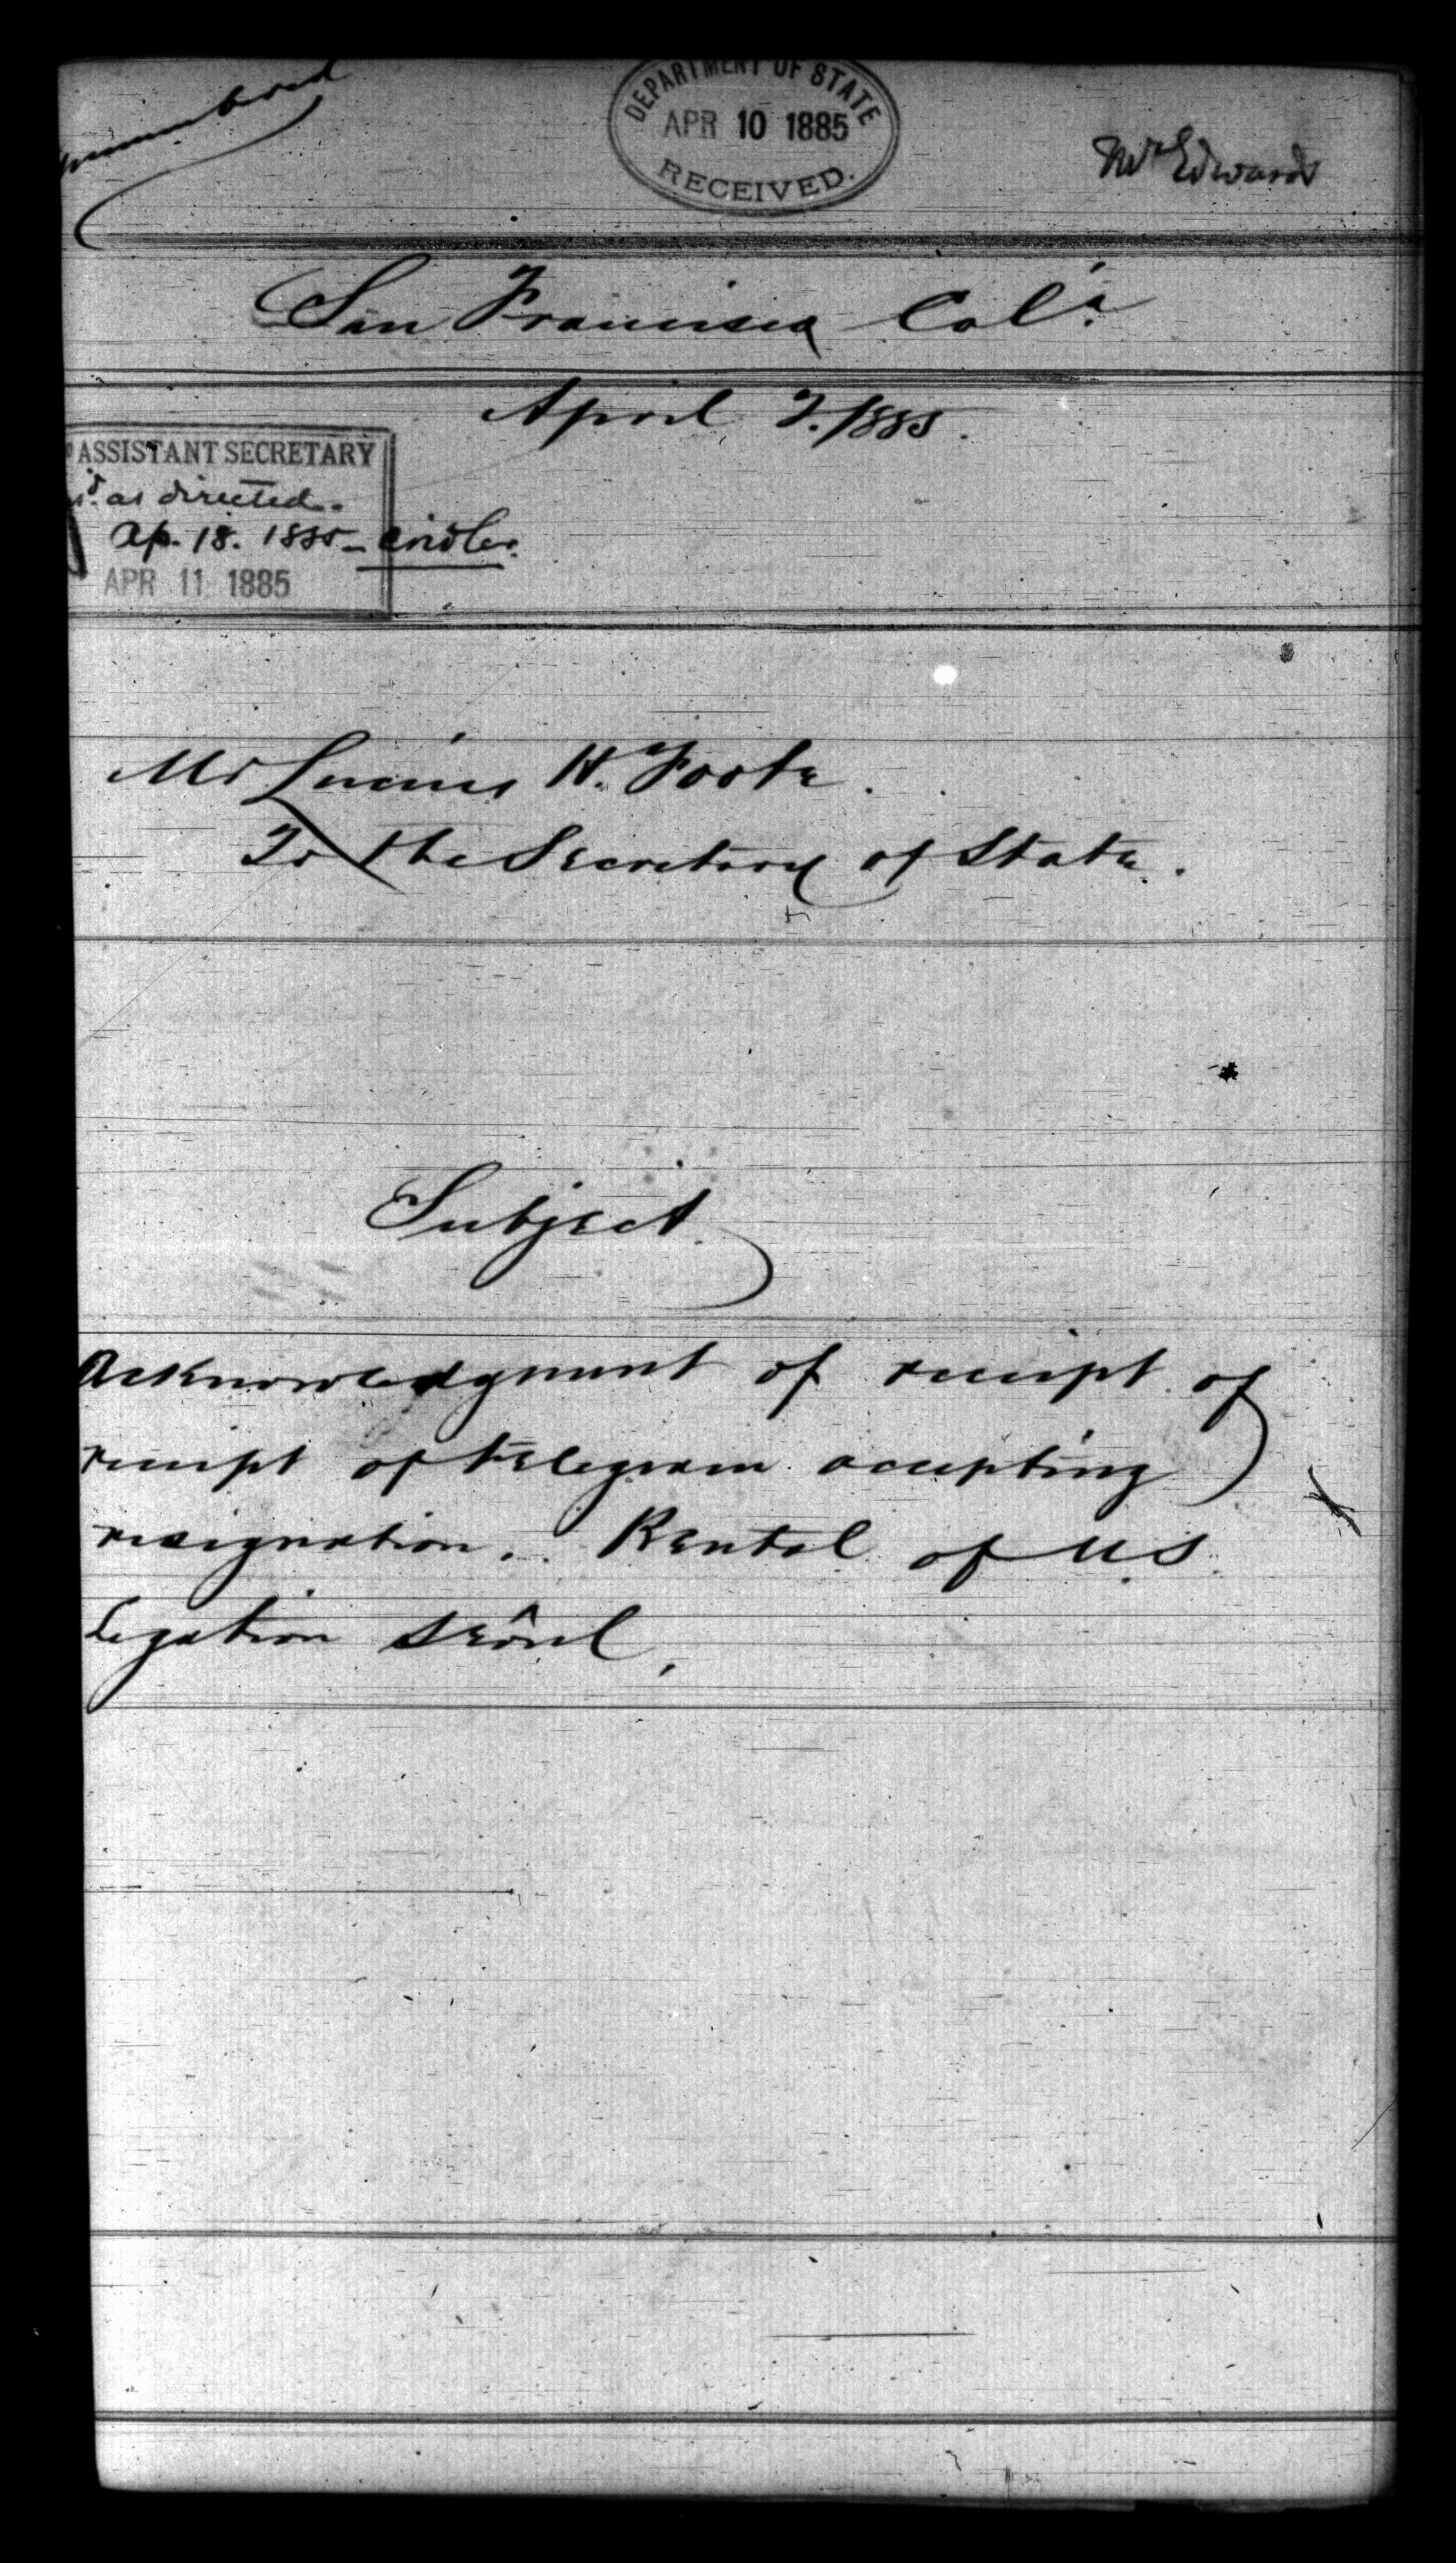 DEPARTMENT OF STATE
APR 10 1885
RECEIVED.
Mr Edwards
San Francisco Cal'a
April 2. 1885.
ASSISTANT SECRETARY
as directed.
Ap. 18. 1885 –
APR 11 1885
Mr Lucius H. Foote.
To the Secretary of State.
Subject
Acknowledgment of receipt of
receipt of telegram accepting
resignation. Rental of U.S.
Legation Sëoul,